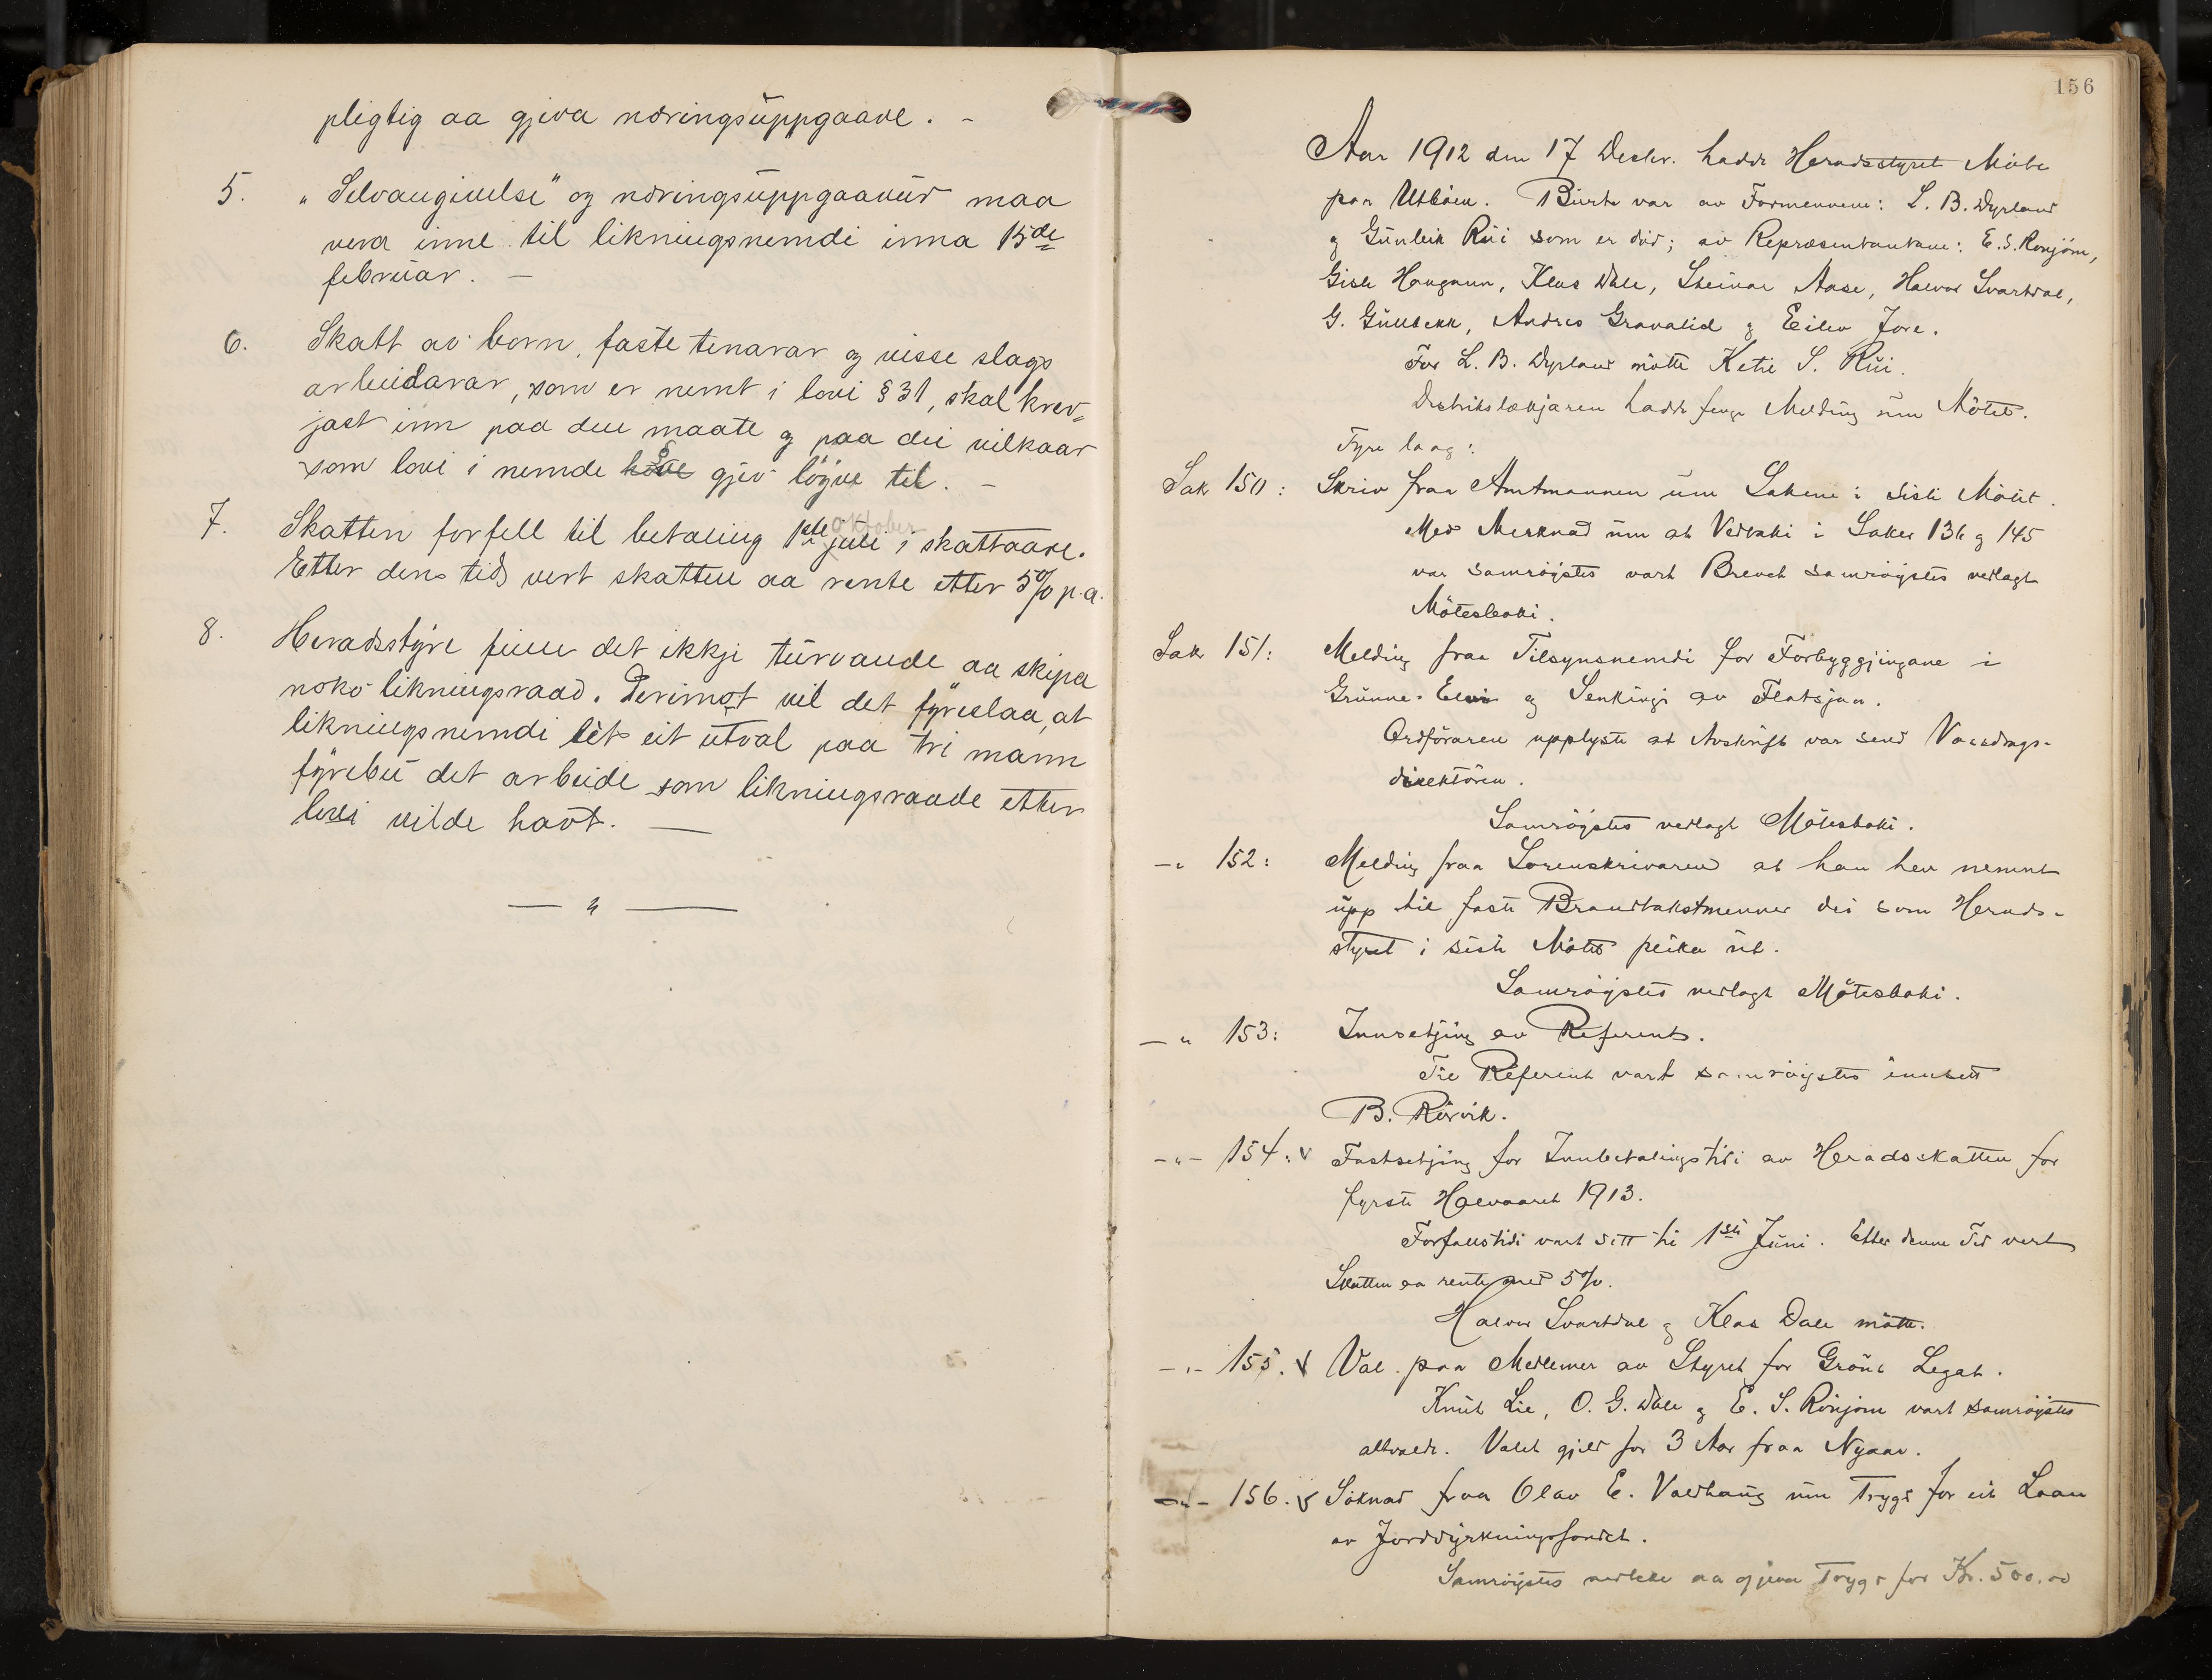 pligtig aa gjeva næringsuppgaave. -
5. "Selvangivelse" og næringsuppgaavur maa
vera inne til likningsnemdi inna 15de
februar. -
6. Skatt av born, faste tenarar og visse slags
arbeidarar, som er nemt i lovi § 31, skal krev-
jast inn paa den maate og paa dei vilkaar
som lovi i nemde § gjev løyve til. -
7. Skatten forfell til betaling 1ste juli oktober i skattaare.
Etter den tid vert skatten aa rente etter 5% p.a.
8. Heradsstyre finn det ikkje turvande aa skipa
noko likningsraad. Derimot vil det fyreslaa, at
likningsnemdi lèt eit utval paa tri mann
fyrebu det arbeide som likningsraade etter
lovi vilde havt. -
— " —
156
Aar 1912 den 17 Desbr. hadde Heradsstyret Møte
paa Utbøen. Burte var av Formennene: L. B. Dyrland
og Gunleik Rui som er død; av Repræsentantane: E. S. Ronjom,
Gisle Haugann, Klas Dale, Steinar Aase, Halvor Svartdal,
G. Gullbekk, Andres Gravalid og Eilev Jore.
For L. B. Dyrland møtte Ketil S. Rui.
Distriktslækjaren hadde fenge Melding um Møtet.
Fyre laag:
Sak 150: Skriv fraa Amtmannen um Sakene i siste Møtet.
Med Merknad um at Vedtaki i Saker 136 og 145
var samrøystes vart Brevet samrøystes vedlagt
Møtesboki.
Sak 151: Melding fraa Tilsynsnemdi for Forbyggjingane i
Grunne-Elvi og Senkingi av Flatsjaa.
Ordføraren upplyste at Avskrift var send Vassdrags-
direktøren.
Samrøystes vedlagt Møtesboki.
-" 152: Melding fraa Sorenskrivaren at han hev nemnt
upp til faste Brandtakstmenner dei som Herads-
styret i siste Møtet peika ut.
Samrøystes vedlagt Møtesboki.
-" 153: Innsetjing av Referent.
Til Referent vart samrøystes innsett
B. Rørvik.
-"- 154: v Fastsetjing for Innbetalingstidi av Heradsskatten for
fyrste Halvaaret 1913.
Forfallstidi vart sett til 1ste Juni. Etter denne Tid vert
Skatten aa rente med 5%.
Halvor Svartdal og Klas Dale møtte.
-"- 155. v Val paa Medlemer av Styret for Grøni Legat.
Knut Lie, O. G. Dale og E. S. Ronjom vart samrøystes
attvalde. Valet gjeld for 3 Aar fraa Nyaar.
-"- 156. v Søknad fraa Olav E. Valdhaug um Trygd for eit Laan
av Jorddyrkningsfondet.
Samrøystes vedteke aa gjeva Trygd for Kr. 500.00